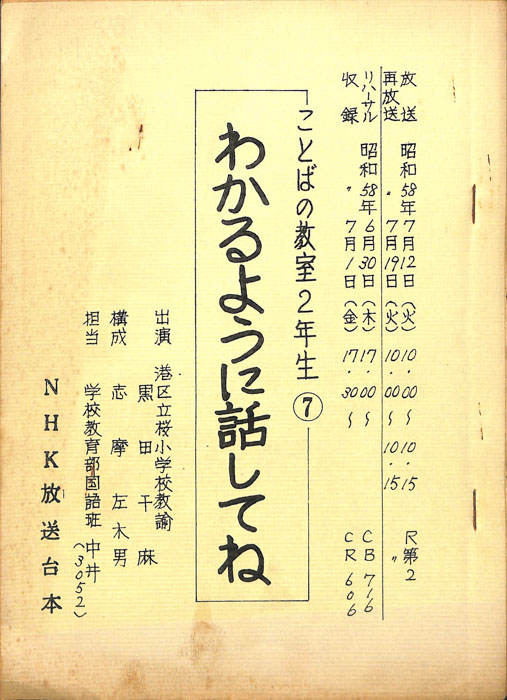 放送 昭和58年7月12日(火) 10.00〜10.15 R第2
再放送 〃 7月19日(火) 10.00〜10.15 〃
リハーサル 昭和58年6月30日(木) 17.00〜 CB716
収録 〃 7月1日(金) 17.30〜 CR606
ことばの教室2年生 ⑦
わかるように話してね
出演 港区立桜小学校教諭
黒田千麻
構成 志摩左木男
担当 学校教育部国語班 中井
(3052)
NHK放送台本